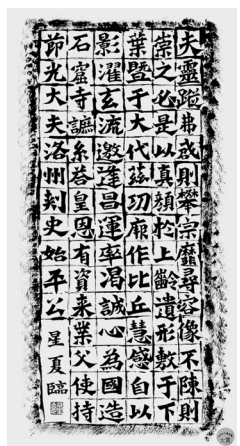 夫靈蹤弗或則攀宗靡尋容像不陳則
崇之必是以真顏於上齡遺形敷于下
葉暨于大代茲功厥作比丘慧感自以
影濯玄流邀逢昌運率渴誠心為國造
石窟寺系答皇恩有資来業父使持
節光大夫洛州刺史始平公
星夏臨